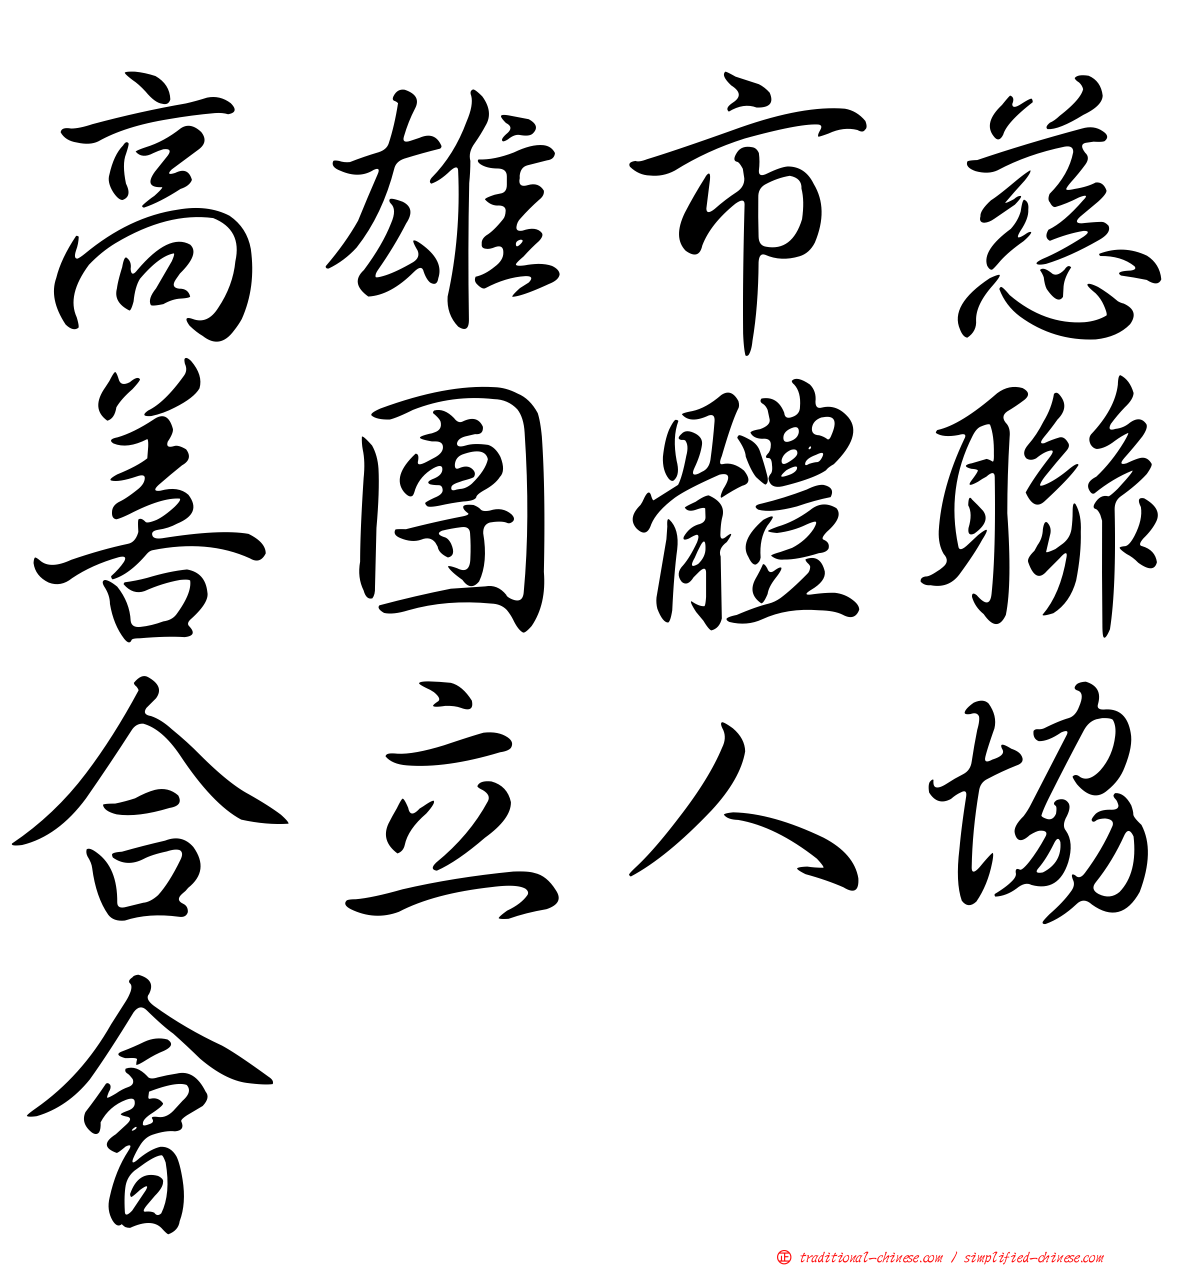 高雄市慈
善團體聯
合立人協
會
㊣ traditional-chinese.com / simplified-chinese.com